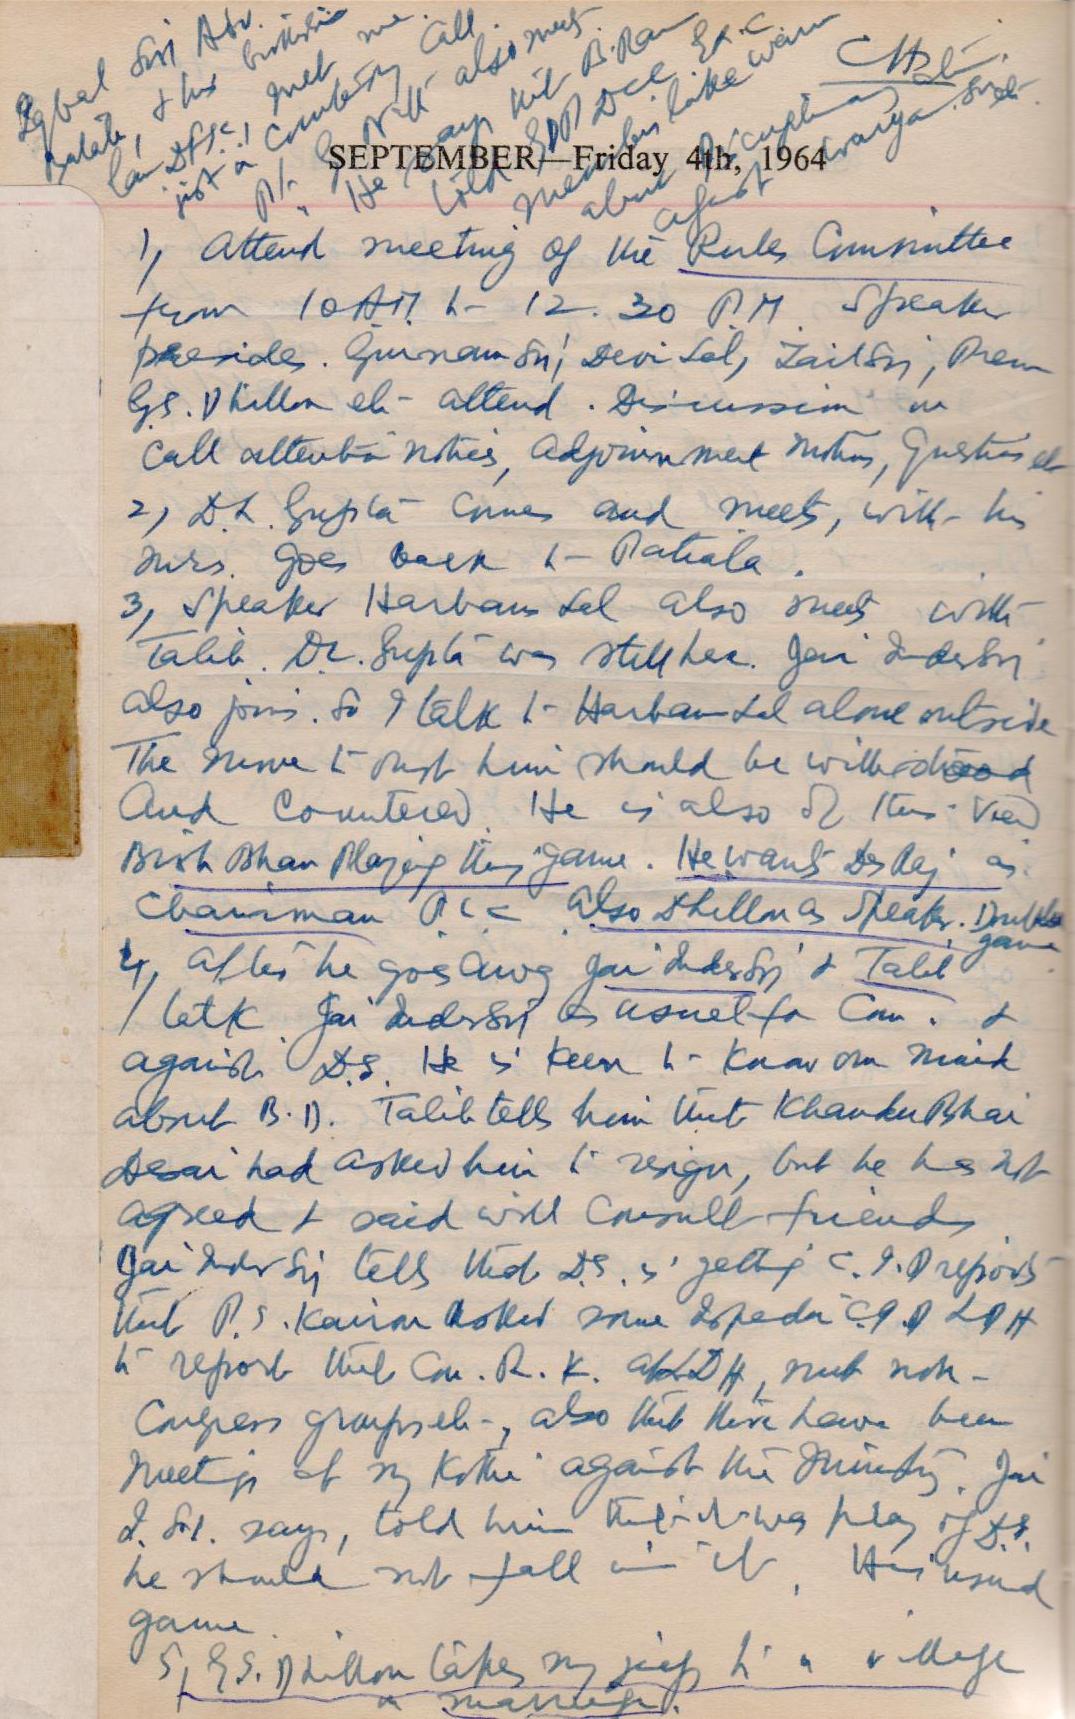 Iqbal Sin Adv.
Patiala, & his brother
met me.
just a courtesy call.
P.S. Nath also meets
He says that B. Ram
told
members like
about
against
Chd.
SEPTEMBER—Friday 4th, 1964
1, Attend meeting of the Rules Committee
from 10 AM to 12.30 P.M. Speaker
preside. Gurnam Sin, Devi Lal, Zail Sin, Prem
G.S. Dhillon etc attend. Discussion on
Call attention notices, Adjournment motions, Questions etc
2, D.L. Gupta comes and meets, with his
Mrs. Goes back to Patiala.
3, Speaker Harbans Lal also meets with
Talib. D.L. Gupta was still here. Jai Inder Sin
also joins. So I talk to Harbans Lal alone outside
The move to oust him should be withstood
and countered. He is also of this view
Brish Bhan Playing this game. He wants Des Raj as
Chairman P.C.C. Also Dhillon as Speaker. Double
game
4, After he goes away Jai Inder Sin & Talib
talk. Jai Inder Sin as usual for Com. &
against D.S. He is keen to know our mind
about B.D. Talib tells him that Khandu Bhai
Desai had asked him to resign, but he has not
agreed & said will consult friends
Jai Inder Sin tells that D.S. is getting C.I.D reports
that P.S. Kairon asked some C.I.D LDH
to report that Com. R.K. at LDH, meet non-
Congress groups etc, also that there have been
meetings at my Kothi against the Ministry. Jai
I. Sin. says, told him that it was play of D.S.
he should not fall in it. His usual
game.
5, G.S. Dhillon takes my jeep to a village
in marriage.